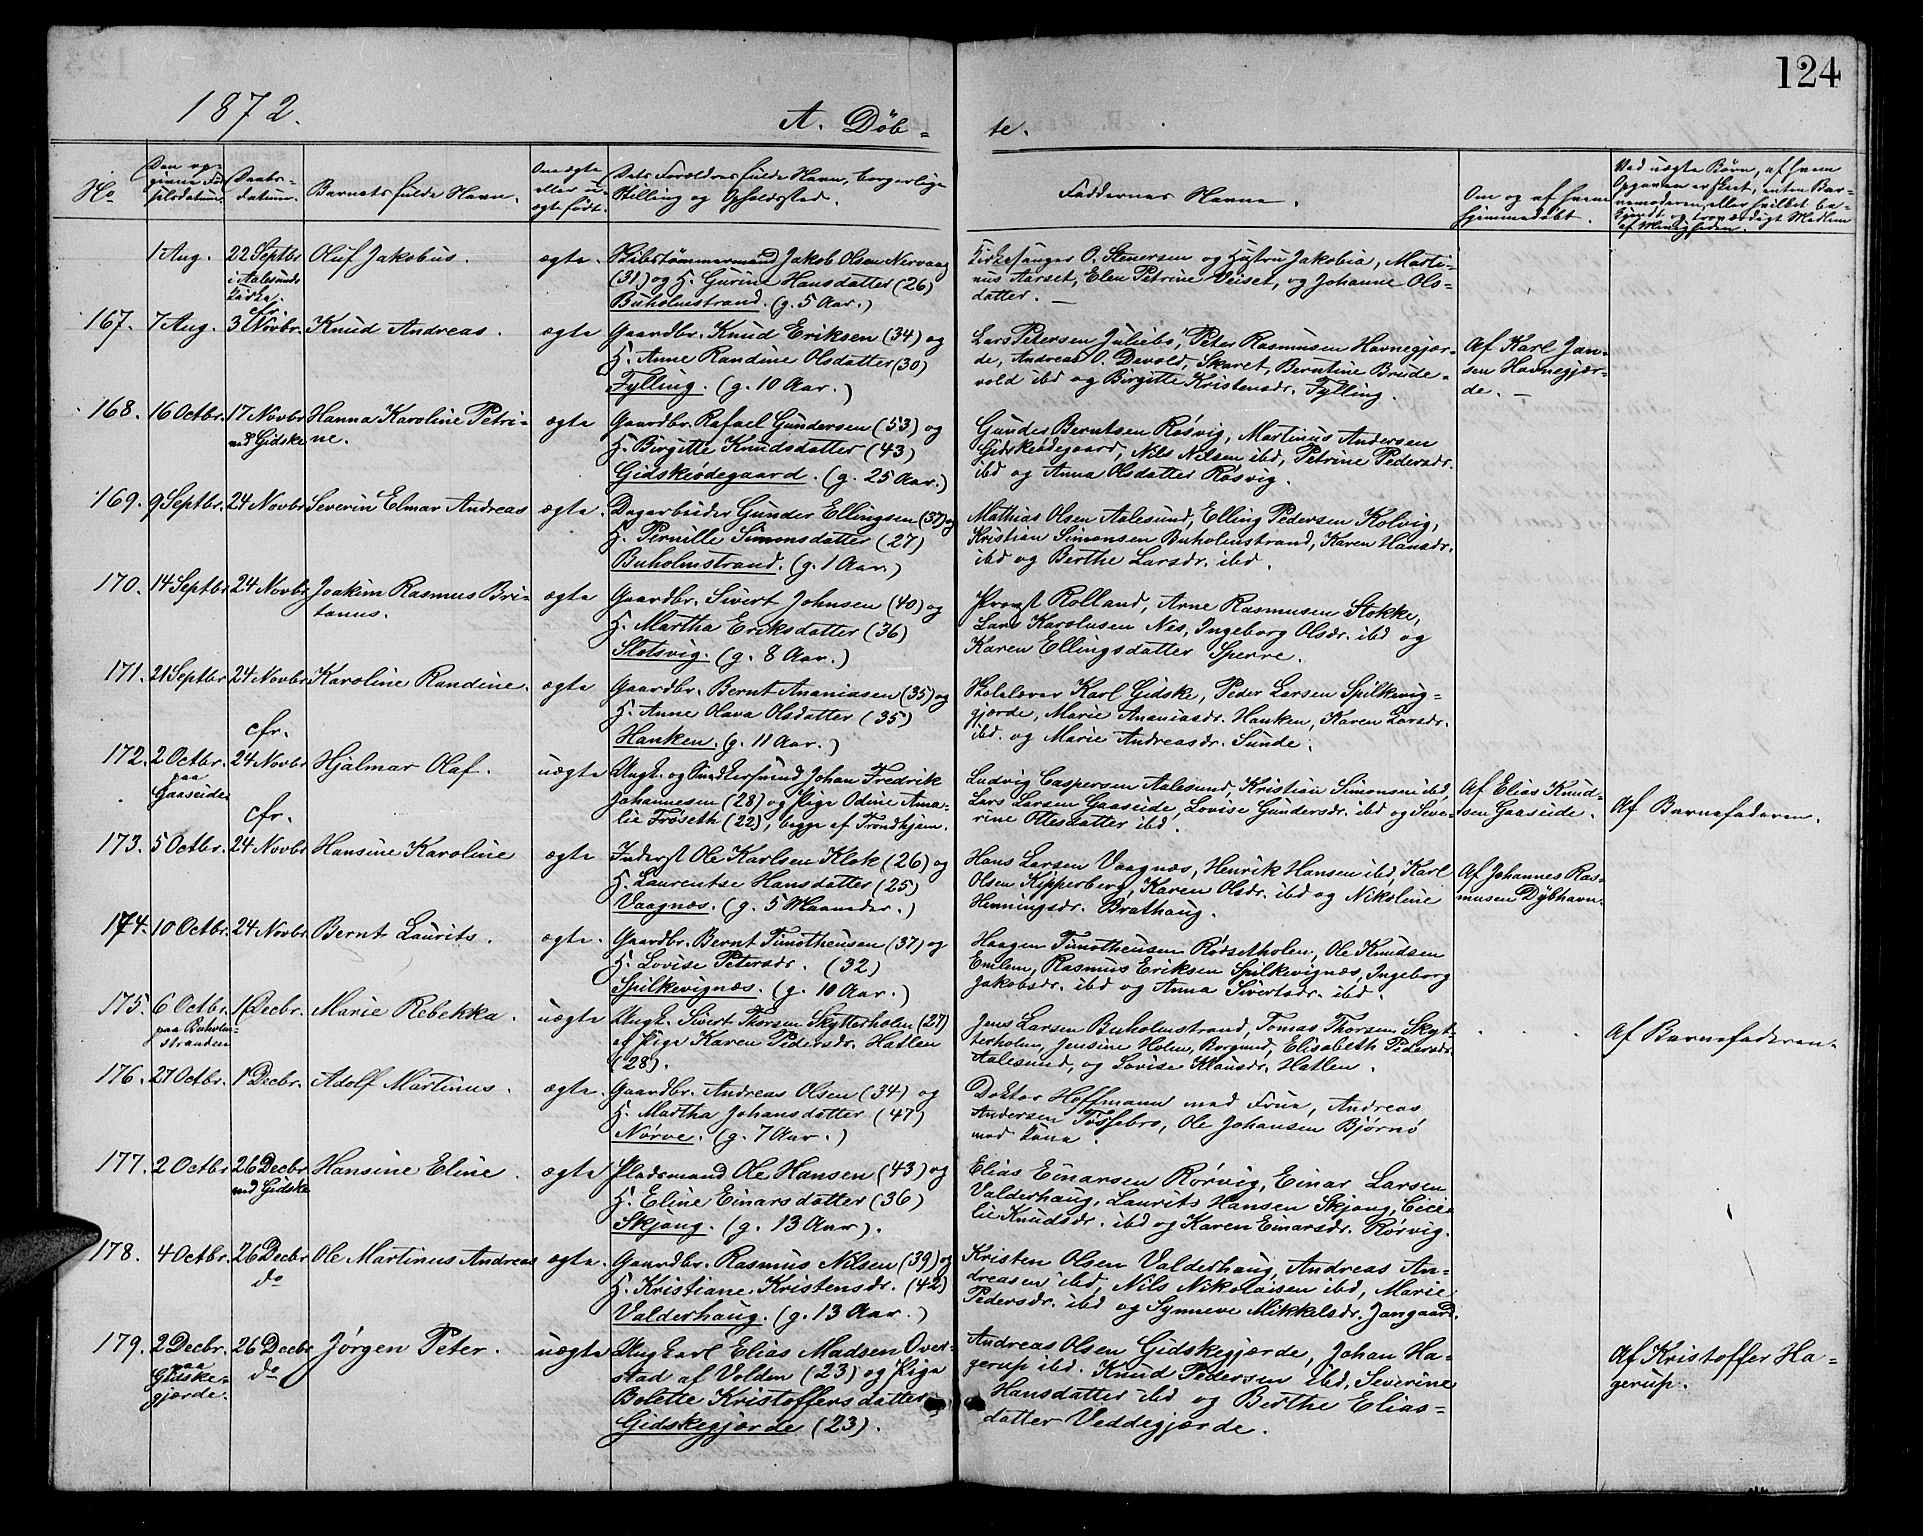 124
1872.
A. Døb-
te.
No
Den op-
givne Fød-
selsdatum.
Daabs-
datum.
Barnets fulde Navn.
Om ægte
eller u-
ægte født.
Dets Forældres fulde Navn, borgerlige
Stilling og Opholdssted.
Faddernes Navne.
Om og af hvem
hjemmedøbt.
Ved uægte Børn, af hvem
Opgaven er skeet, enten Bar-
nemoderen, eller hvilket be-
kjendt og troværdigt Medlem
af Menigheden.
1 Aug.
22 Septbr
i Aalesunds
Kirke.
Oluf Jakobus.
ægte.
Skibstømmermand Jakob Olsen Nervaag
(31) og H. Gurine Hansdatter (26)
Buholmstrand. (g. 5 Aar.)
Kirkesanger O. Stenersen og Hustru Jakobia, Marti-
nus Aarset, Elen Petrine Veiset, og Johanne Ols-
datter. —
167.
7 Aug.
cfr.
3 Novbr.
Knud Andreas.
ægte
Gaardbr. Knud Eriksen (34) og
H. Anne Randine Olsdatter (30)
Fylling. (g. 10 Aar.)
Lars Petersen Juliebø, Peter Rasmussen Havnegjær-
de, Andreas O. Devold, Skaret, Berntine Brude-
vold ibd og Birgitte Kristensdr. Fylling.
Af Karl Jan-
sen Havnegjær-
de. —
168.
16 Octbr.
17 Novbr
ved Gidske
Hanna Karoline Petri-
ne.
ægte
Gaardbr. Rafael Gundersen (53) og
H. Birgitte Knudsdatter (43)
Gidskeødegaard. (g. 25 Aar.)
Gunder Berntsen Røsvig, Martinus Andersen
Gidskeødegaard, Nils Nilsen ibd, Petrine Pedersdr.
ibd og Anna Olsdatter Røsvig.
169.
9 Septbr.
24 Novbr
Severin Elmar Andreas
ægte
Dagarbeider Gunder Ellingsen (37) og
H. Pernille Simonsdatter (27)
Buholmstrand. (g. 1 Aar.)
Mathias Olsen Aalesund, Elling Pedersen Kolvig,
Kristian Simonsen Buholmstrand, Karen Hansdr.
ibd og Berthe Larsdr. ibd.
170.
14 Septbr
24 Novbr
Joakim Rasmus Bri-
tanus.
ægte
Gaardbr. Sivert Johnsen (40) og
H. Martha Eriksdatter (36)
Slotsvig. (g. 8 Aar.)
Provst Rolland, Arne Rasmusen Stokke,
Lars Karolusen Nes, Ingeborg Olsdr. ibd og
Karen Ellingsdatter Sperre.
171.
21 Septbr
24 Novbr
Karoline Randine.
ægte
Gaardbr. Bernt Ananiasen (35) og
H. Anne Olava Olsdatter (35)
Hanken. (g. 11 Aar.)
Skolelærer Karl Gidske, Peder Larsen Spilkevig-
gjærde, Marie Ananiasdr. Hanken, Karen Larsdr.
ibd. og Marie Andreasdr. Sunde.
172.
2 Octbr.
paa
Gaaseide
cfr.
24 Novbr
Hjalmar Olaf.
uægte
Ungk. og Snedkersvend Johan Fredrik
Johannesen (28) og Pige Odine Ama-
lie Frøseth (22), begge af Trondhjem.
Ludvig Caspersen Aalesund, Kristian Simonsen ibd,
Lars Larsen Gaaseide, Lovise Gundersdr. ibd og Seve-
rine Ottesdatter ibd.
Af Elias Knud-
sen Gaaseide.
Af Barnefaderen.
173.
5 Octbr.
cfr.
24 Novbr
Hansine Karoline
ægte
Inderst Ole Karlsen Klok (26) og
H. Laurentse Hansdatter (25)
Vaagnæs. (g. 5 Maaneder.)
Hans Larsen Vaagnæs, Henrik Hansen ibd, Karl
Olsen Kipperberg, Karen Olsdr. ibd og Nikoline
Henningsdr. Brathaug.
Af Johannes Ras-
musen Dybhavn.
174.
10 Octbr.
24 Novbr.
Bernt Laurits.
ægte.
Gaardbr. Bernt Timotheusen (37) og
H. Lovise Petersdr. (32)
Spilkevignæs. (g. 10 Aar.)
Haagen Timotheusen Rødsetholen, Ole Knudsen
Emlem, Rasmus Eriksen Spilkevignæs, Ingeborg
Jakobsdr. ibd og Anna Sivertsdr. ibd.
175.
6 Octbr.
paa Buholm-
stranden
1 Decbr.
Marie Rebekka.
uægte
Ungk. Sivert Thorsen Skytterholm (27)
og Pige Karen Pedersdr. Hatlen
(28).
Jens Larsen Buholmstrand, Tomas Thorsen Skyt-
terholm, Jensine Holm, Borgund, Elisabeth Pedersdr.
Aalesund, og Lovise Klausdr. Hatlen.
Af Barnefaderen.
176.
27 Octbr.
1 Decbr.
Adolf Martinus.
ægte.
Gaardbr. Andreas Olsen (34) og
H. Martha Johansdatter (47)
Nørve. (g. 7 Aar.)
Doktor Hoffmann med Frue, Andreas
Andersen Fossebro, Ole Johansen Bjørnø
med Kone.
177.
2 Octbr
26 Decbr
ved Gidske
Hansine Eline.
ægte
Pladsmand Ole Hansen (43) og
H. Eline Einarsdatter (36)
Skjong. (g. 13 Aar).
Elias Einarsen Rørvig, Einar Larsen
Valderhaug, Laurits Hansen Skjong, Ceci-
lie Knudsdr. ibd og Karen Einarsdr. Rørvig.
178.
4 Octbr.
26 Decbr
do
Ole Martinus Andreas
ægte.
Gaardbr. Rasmus Nilsen (39) og
H. Kristiane Kristensdr. (42)
Valderhaug. (g. 13 Aar.)
Kristen Olsen Valderhaug, Andreas An-
dreasen ibd, Nils Nikolaisen ibd, Marie
Pedersdr. ibd og Synneve Mikkelsdr. Jangaard.
179.
2 Decbr.
paa
Gidske-
gjærde.
26 Decbr
do
Jørgen Peter.
uægte
Ungkarl Elias Madsen Over-
stad af Volden (23) og Pige
Bolette Kristoffersdatter
Gidskegjærde (23).
Andreas Olsen Gidskegjærde, Johan Ha-
gerup ibd. Knud Pedersen ibd, Severine
Hansdatter ibd og Berthe Elias-
datter Veddegjærde.
Af Kristoffer Ha-
gerup.